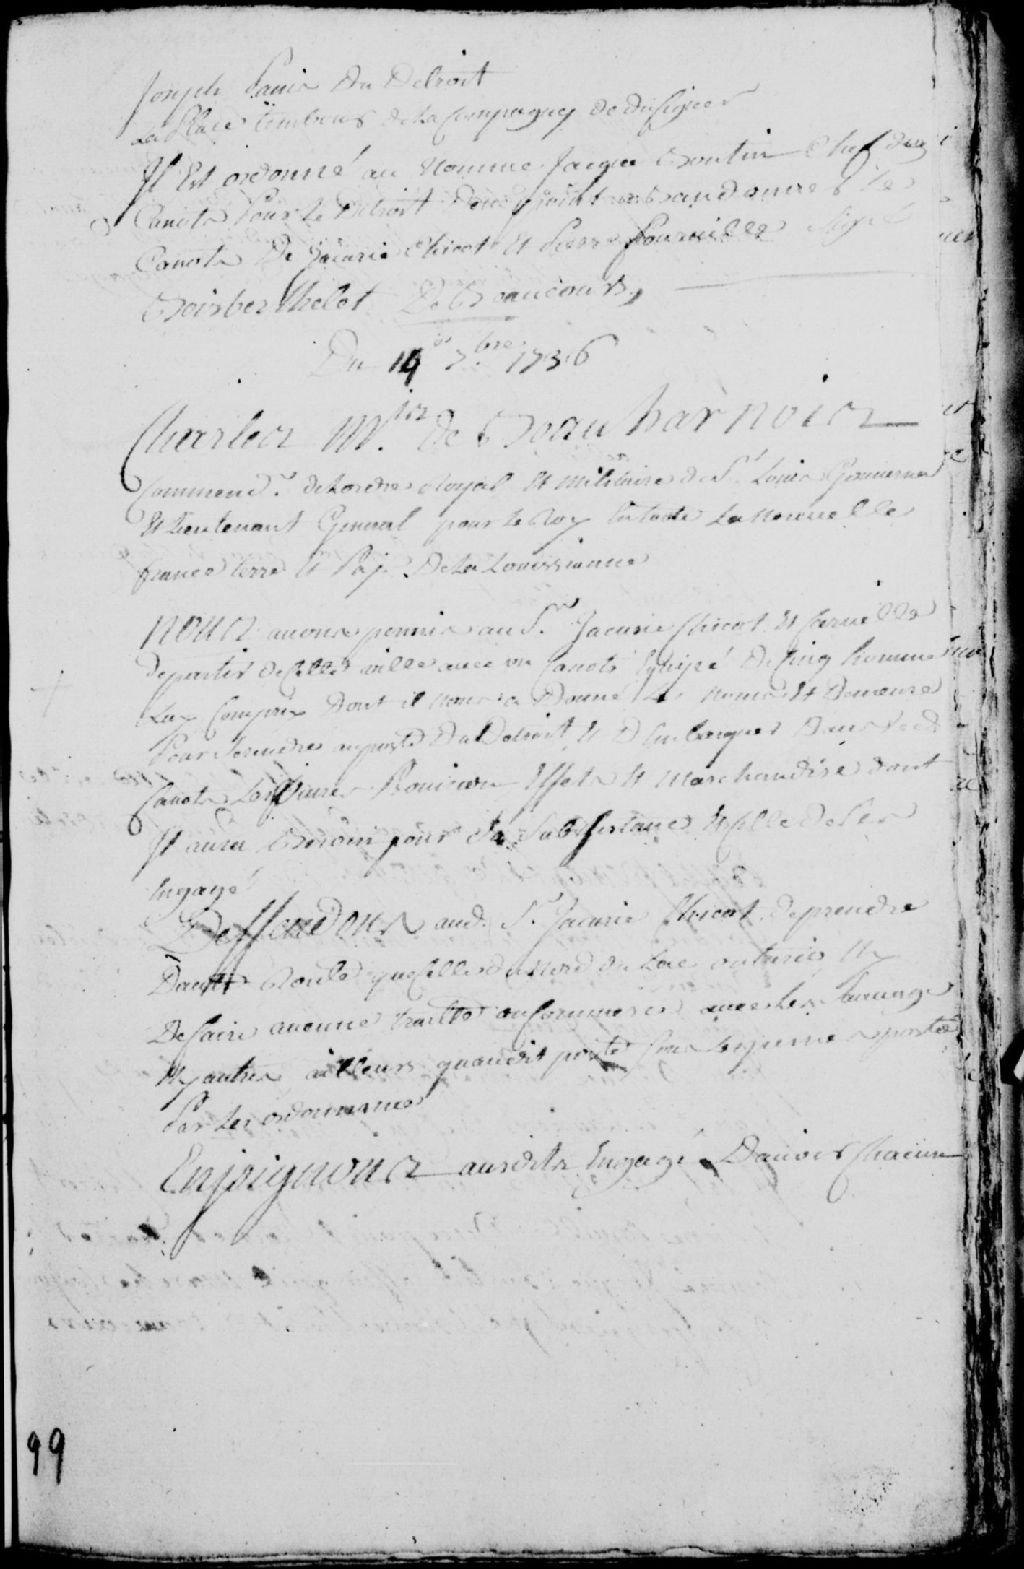 Joseph Panis Du Detroit
La Place Tambour de la Compagnie de dusigner
Il Est ordonné au Nomme Jacque Boutin Chef des
Canots Pour le Detroit De point abandonner le
Canots De Jacurie Chicot Et Pierre fournille Signé
Boisberthelot De Beaucours,
Du 14 7.bre 1736
Charles M.is de Beauharnois
Command.r de Lordre Royal Et militaire de S.t Louis Gouverneur
Et Lieutenant General pour le Roy En toute La Nouvelle
france terre Et Pays De la Louissianne
Nous auons permis au S.r Jacurie Chicot Et
De partir de Cette ville auec un Canots Equipé De Cinq homme
Luy Compris Dont il Nous a Donné Les Noms Et Demeure
Pour Se rendre au poste Du Detroit Et D Embarquer Dans Led.
Canots Les Viures Municion Effets Et Marchandise dont
Il aura Besoin pour Sa Subsistance Et Celle de Ses
Engagé
Deffendons aud. S.r Jacurie Chicot de prendre
Dautre Route que Celle du Nord du Lac ontario Ny
De faire aucune traitte ou Commerce auec les Sauuage
Ny autres ailleurs quaudit poste Sous les peines portés
Par les ordonnances
Enjoignons ausdits Engagé Dauoir Chacun
99